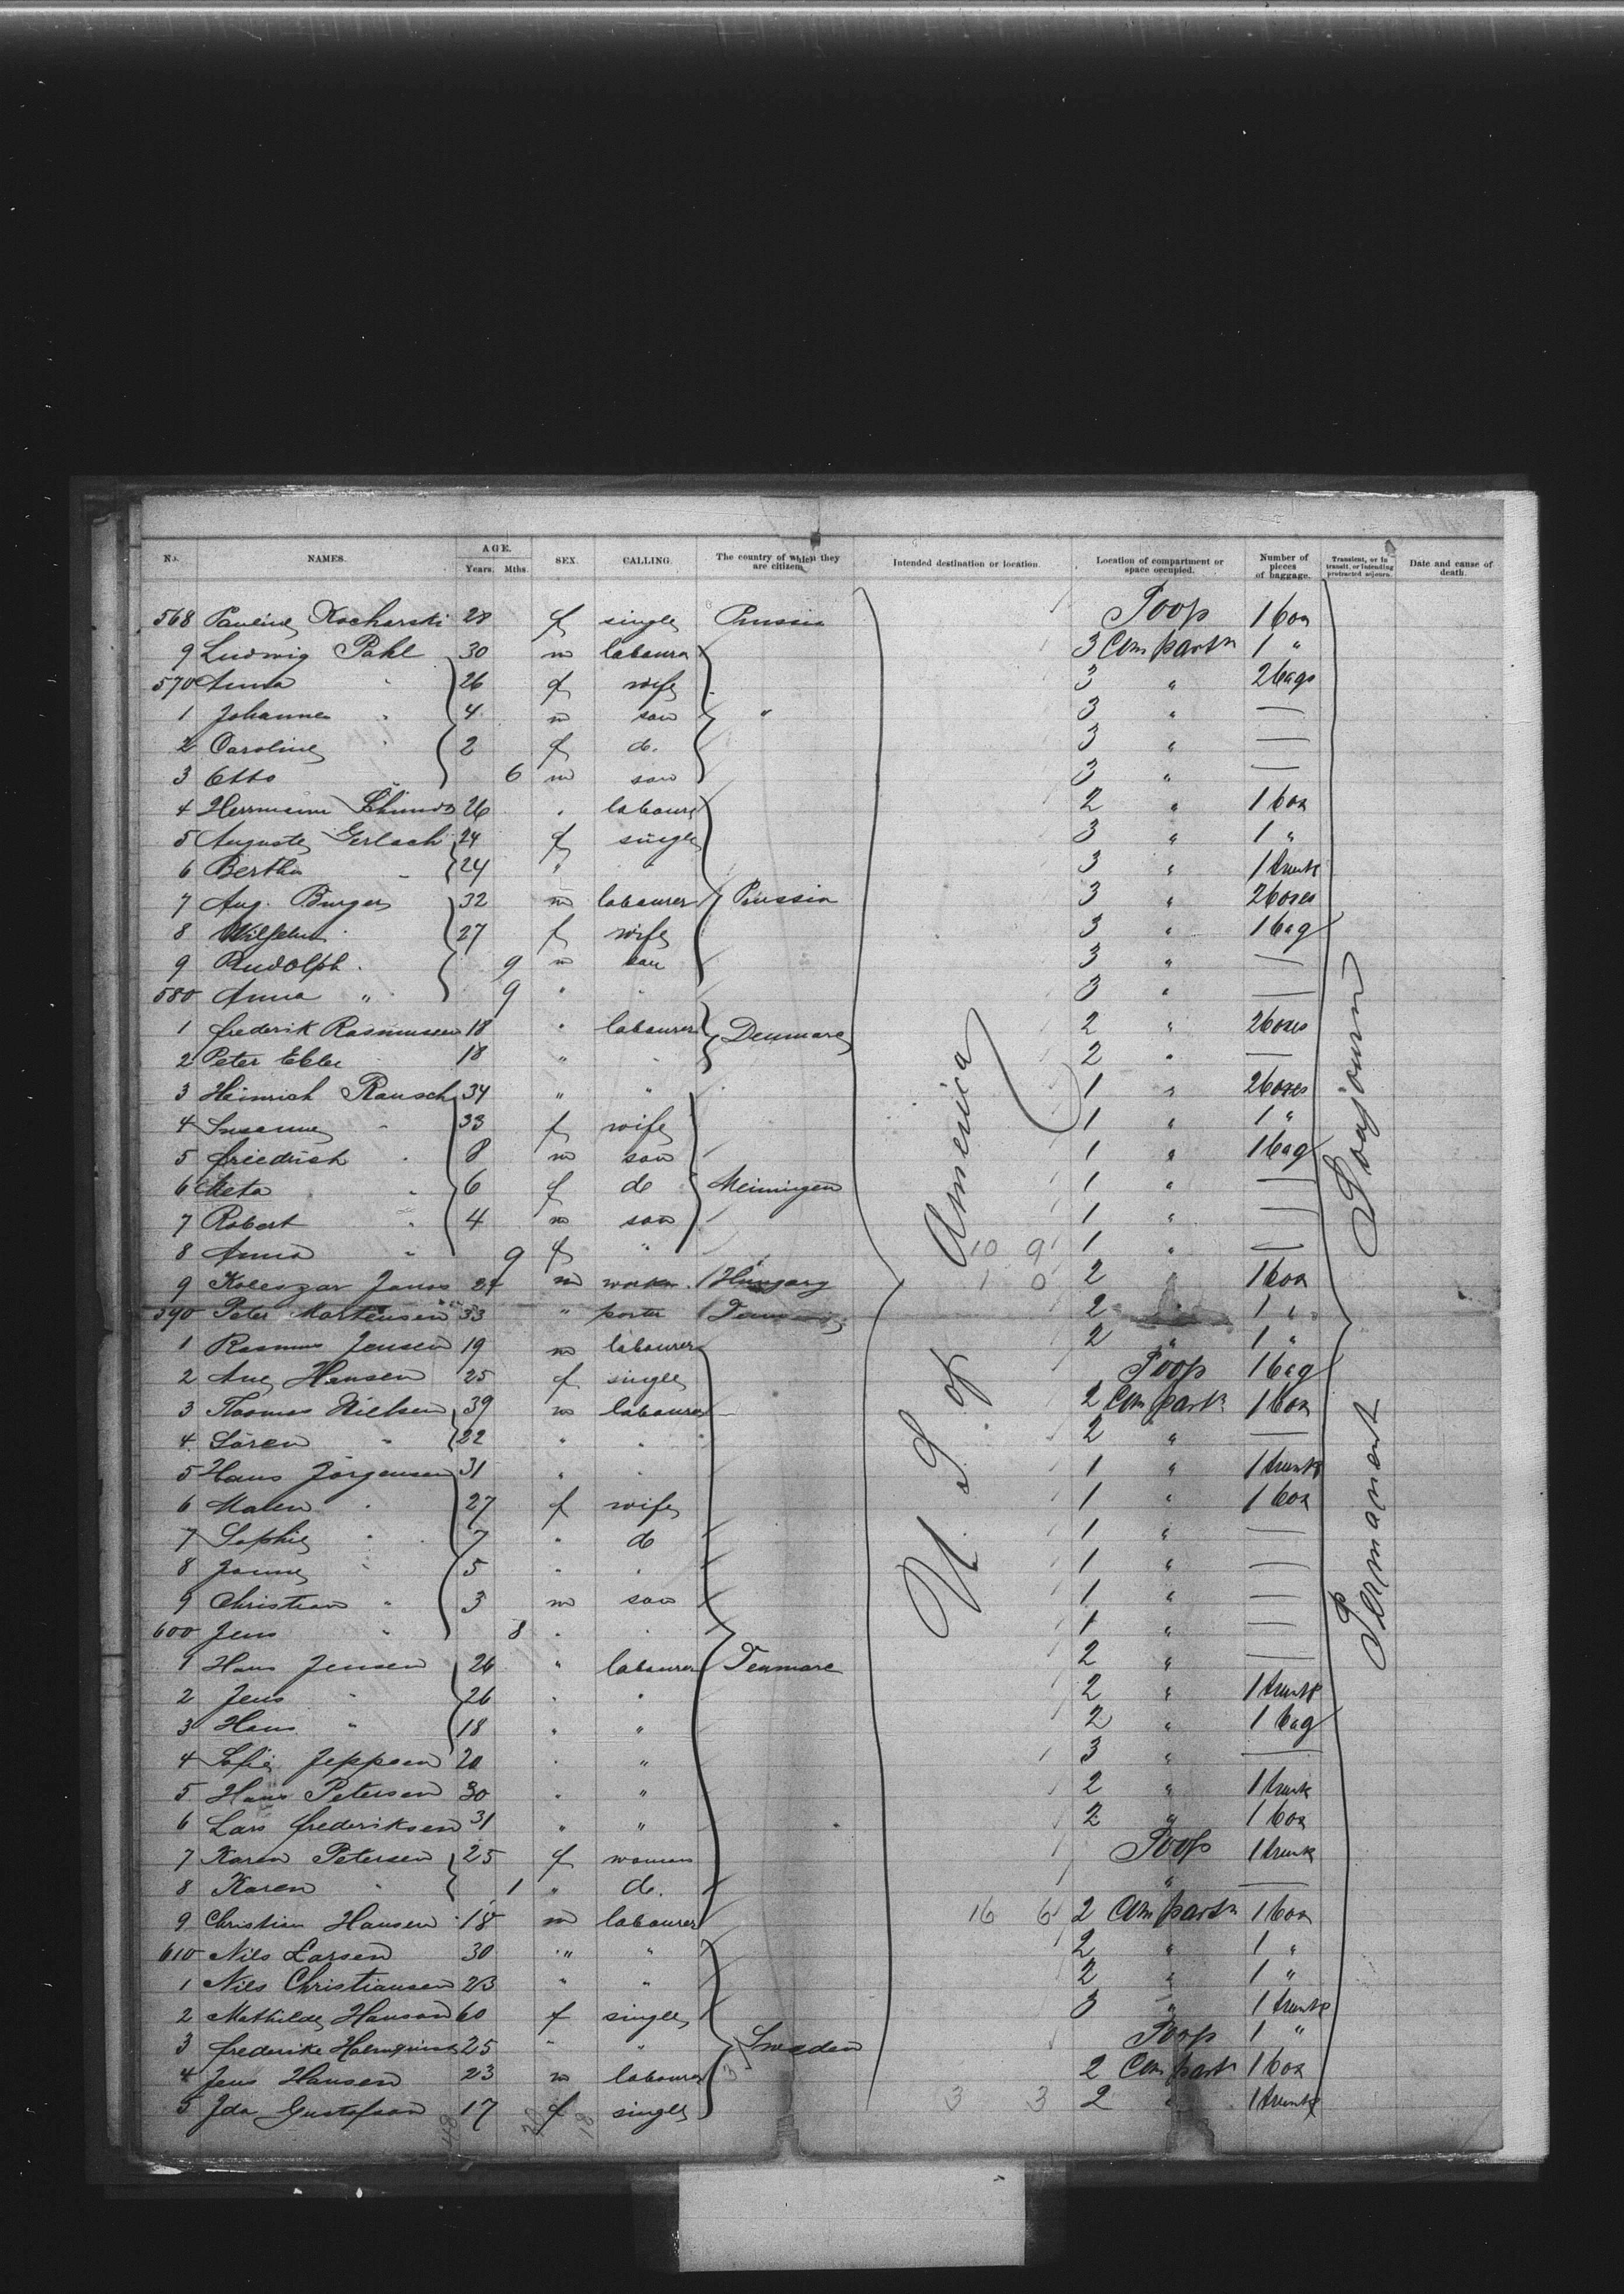 No. NAMES. AGE. Years. Mths. SEX. CALLING. The country of which they are citizens. Intended destination or location. Location of compartment or space occupied. Number of pieces of baggage. Transient, or in transit, or intending protracted sojourn. Date and cause of death.
568 Pauline Kocharski 28 f single Prussia Poop 1 box
9 Ludwig Pahl 30 m labourer 3 Compartm 1 "
570 Anna " 26 f wife 3 " 2 bags
1 Johannes " 4 m son " 3 " —
2 Caroline " 2 f d. 3 " —
3 Otto " 6 m son 3 " —
4 Herrmann 26 " labourer 2 " 1 box
5 Auguste Gerlach 24 f single 3 " 1 "
6 Bertha " 24 " " 3 " 1 trunk
7 Aug. Burger 32 m labourer Prussia 3 " 2 boxes
8 Wilhelm " 27 f wife 3 " 1 bag
9 Rudolph " 9 m son 3 " —
580 Anna " 9 " " 3 " —
1 Frederik Rasmussen 18 " labourer Denmark 2 " 2 boxes
2 Peter Ebbe 18 " " 2 " —
3 Heinrich Rausch 34 " " 1 " 2 boxes
4 Susanne " 33 f wife 1 " 1 "
5 Friedrich " 8 m son 1 " 1 bag
6 Meta " 6 f d. Meiningen 1 " —
7 Robert " 4 m son 1 " —
8 Anna " 9 f " 10 9 1 " —
9 Koleszar Janos 24 m worker Hungary 1 0 2 " 1 box
590 Peter Martensen 33 " porter 2 " 1 "
1 Rasmus Jensen 19 m labourer 2 " 1 "
2 Ane Hansen 25 f single Poop 1 bag
3 Thomas Nielsen 39 m labourer 2 Compartm 1 box
4 Sören " 22 " " 2 " —
5 Hans Jörgensen 31 " " 1 " 1 trunk
6 Maren " 27 f wife 1 " 1 box
7 Sophie " 7 " d. 1 " —
8 " 5 " " 1 " —
9 Christian " 3 m son 1 " —
600 Jens " 8 " " 1 " —
1 Hans Jensen 24 " labourer Denmark 2 " —
2 Jens " 26 " " 2 " 1 trunk
3 Hans " 18 " " 2 " 1 bag
4 Sofie Jeppsen 20 " " 3 " —
5 Hans Petersen 30 " " 2 " 1 trunk
6 Lars Frederiksen 31 " " 2 " 1 box
7 Karen Petersen 25 f woman Poop 1 trunk
8 Karen " 1 " d. " —
9 Christian Hansen 18 m labourer 16 6 2 Compartm 1 box
610 Nils Larsen 30 " " 2 " 1 "
1 Nils Christiansen 23 " " 2 " 1 "
2 Mathilde Hanson 60 f single 3 " 1 trunk
3 Frederike 25 " " Sweden Poop 1 "
4 Jens Hansen 23 m labourer 3 2 Compartm 1 box
5 Ida Gustafson 17 f single 3 3 2 " 1 trunk
U. S. of America
Permanent Soojourn